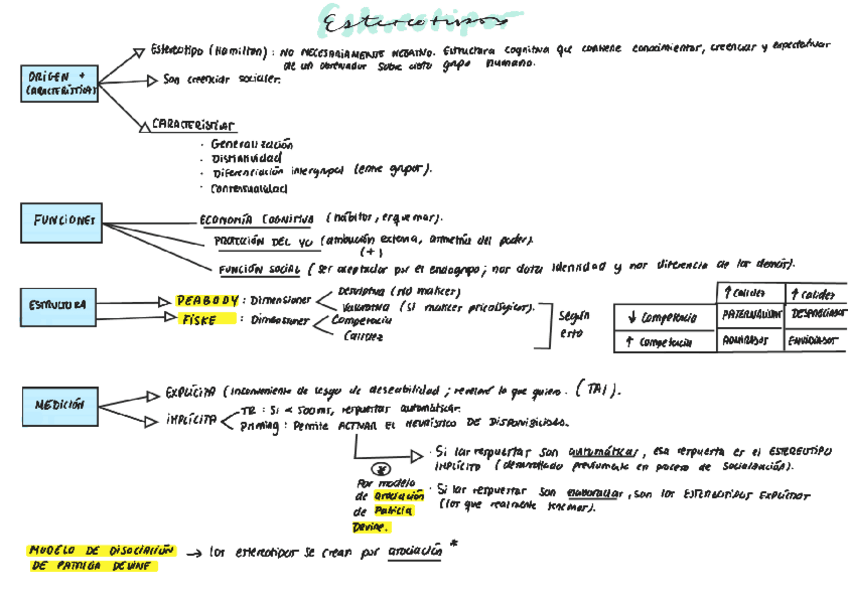 Estereotipos
ORIGEN +
CARACTERÍSTICAS
Estereotipo (Hamilton): NO NECESARIAMENTE NEGATIVO. Estructura cognitiva que contiene conocimientos, creencias y expectativas
de un observador sobre cierto grupo humano.
Son creencias sociales.
CARACTERÍSTICAS
· Generalización
· Distintividad
· Diferenciación intergrupal (entre grupos).
· Contextualidad
FUNCIONES
ECONOMÍA COGNITIVA (hábitos, esquemas).
PROTECCIÓN DEL YO (atribución externa, asimetrías del poder).
(+)
FUNCIÓN SOCIAL (ser aceptados por el endogrupo; nos dota identidad y nos diferencia de los demás).
ESTRUCTURA
PEABODY: Dimensiones
Descriptiva (no matices)
Valorativa (sí matices psicológicos).
FISKE: Dimensiones
Competencia
Calidez
Según
esto
↑ Calidez
↑ Calidez
↓ Competencia
PATERNALISTAS
DESPRECIADOS
↑ Competencia
ADMIRADOS
ENVIDIADOS
MEDICIÓN
EXPLÍCITA (Inconveniente de sesgo de deseabilidad; lo que quiero. (TAI).
IMPLÍCITA
TR: Si < 500ms, respuestas automáticas.
Priming: Permite ACTIVAR EL HEURÍSTICO DE
· Si las respuestas son automáticas, esa respuesta es el ESTEREOTIPO
IMPLÍCITO (desarrollado previamente en proceso de socialización).
*
Por modelo
de asociación
de Patricia
Devine.
· Si las respuestas son elaboradas, son los ESTEREOTIPOS EXPLÍCITOS
(los que realmente tenemos).
MODELO DE DISOCIACIÓN
DE PATRICIA DEVINE
→ los estereotipos se crean por asociación *